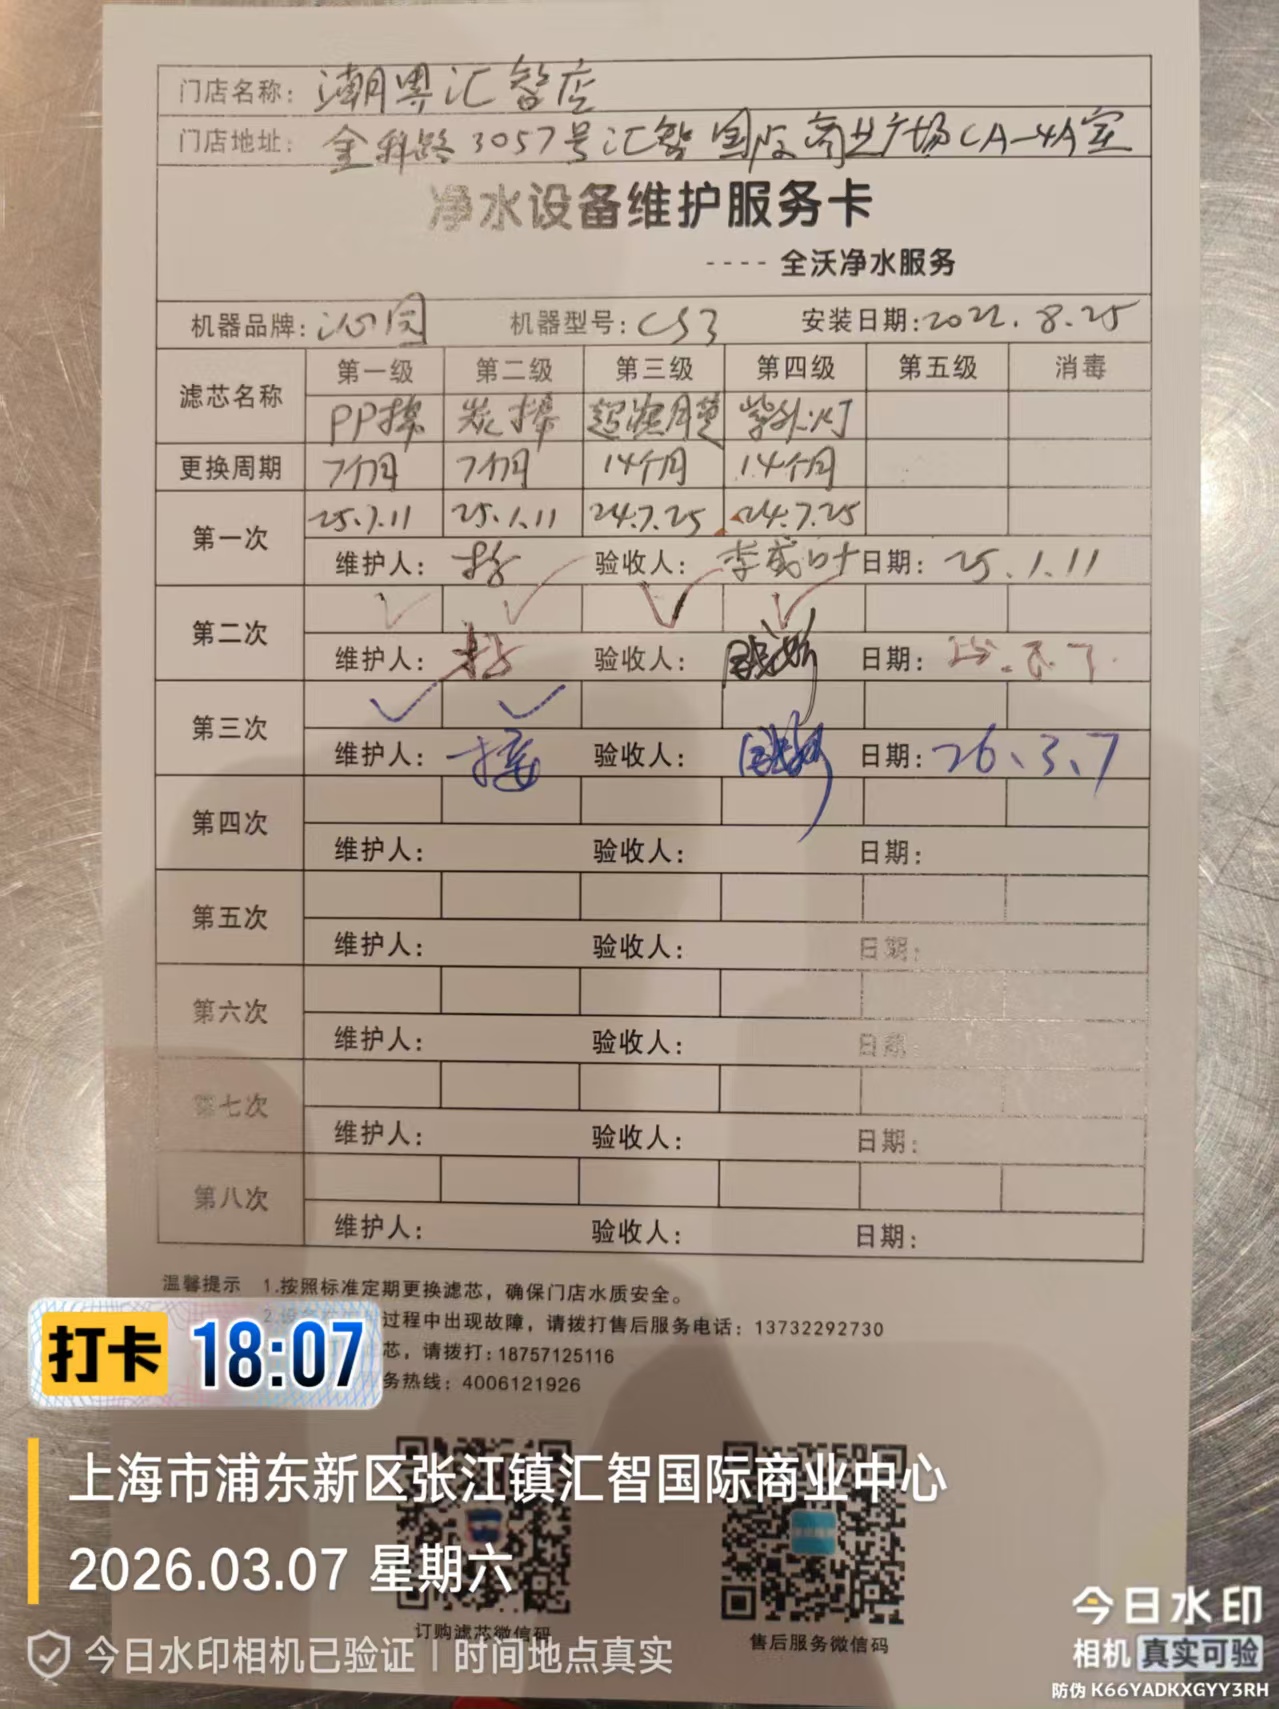 门店名称: 潮界汇智店
门店地址: 金科路3057号汇智国际商业广场CA-4A室
净水设备维护服务卡
---- 全沃净水服务
机器品牌: 沁园 机器型号: CS3 安装日期: 2022.8.25
滤芯名称 第一级 第二级 第三级 第四级 第五级 消毒
PP棉 炭棒 超滤膜 紫外灯
更换周期 7个月 7个月 14个月 14个月
第一次 25.1.11 25.1.11 24.7.25 24.7.25
维护人: 验收人: 日期: 25.1.11
第二次 ✓ ✓ ✓ ✓
维护人: 验收人: 日期:
第三次 ✓ ✓
维护人: 验收人: 日期: 26.3.7
第四次
维护人: 验收人: 日期:
第五次
维护人: 验收人: 日期:
第六次
维护人: 验收人: 日期:
第七次
维护人: 验收人: 日期:
第八次
维护人: 验收人: 日期:
温馨提示 1.按照标准定期更换滤芯，确保门店水质安全。
2.设过程中出现故障，请拨打售后服务电话: 13732292730
芯，请拨打: 18757125116
务热线: 4006121926
打卡 18:07
上海市浦东新区张江镇汇智国际商业中心
2026.03.07 星期六
订购滤芯微信码 售后服务微信码
今日水印相机已验证 | 时间地点真实
今日水印
相机 真实可验
防伪 K66YADKXGYY3RH